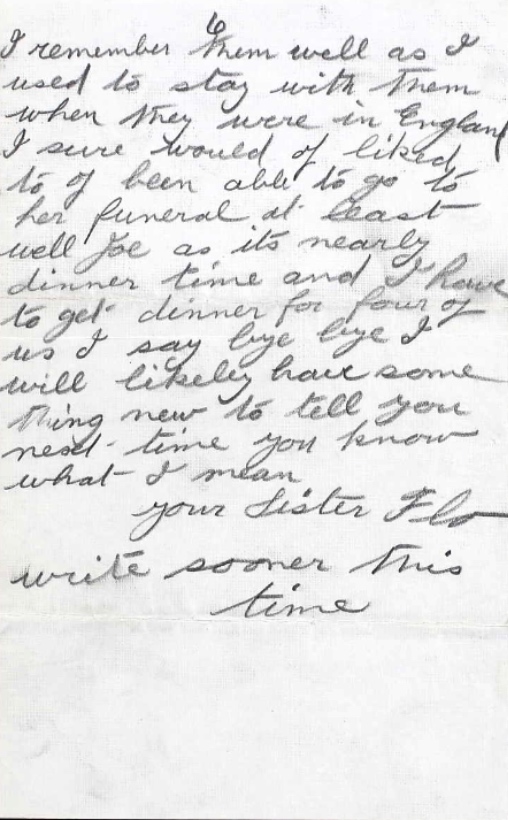 6
I remember them well as I
used to stay with them
when they were in England
I sure would of liked
to of been able to go to
her funeral at least
well Joe as its nearly
dinner time and I have
to get dinner for four of
us I say bye bye I
will likeley have some
thing new to tell you
next time you know
what I mean
your Sister Flo
write sooner this
time